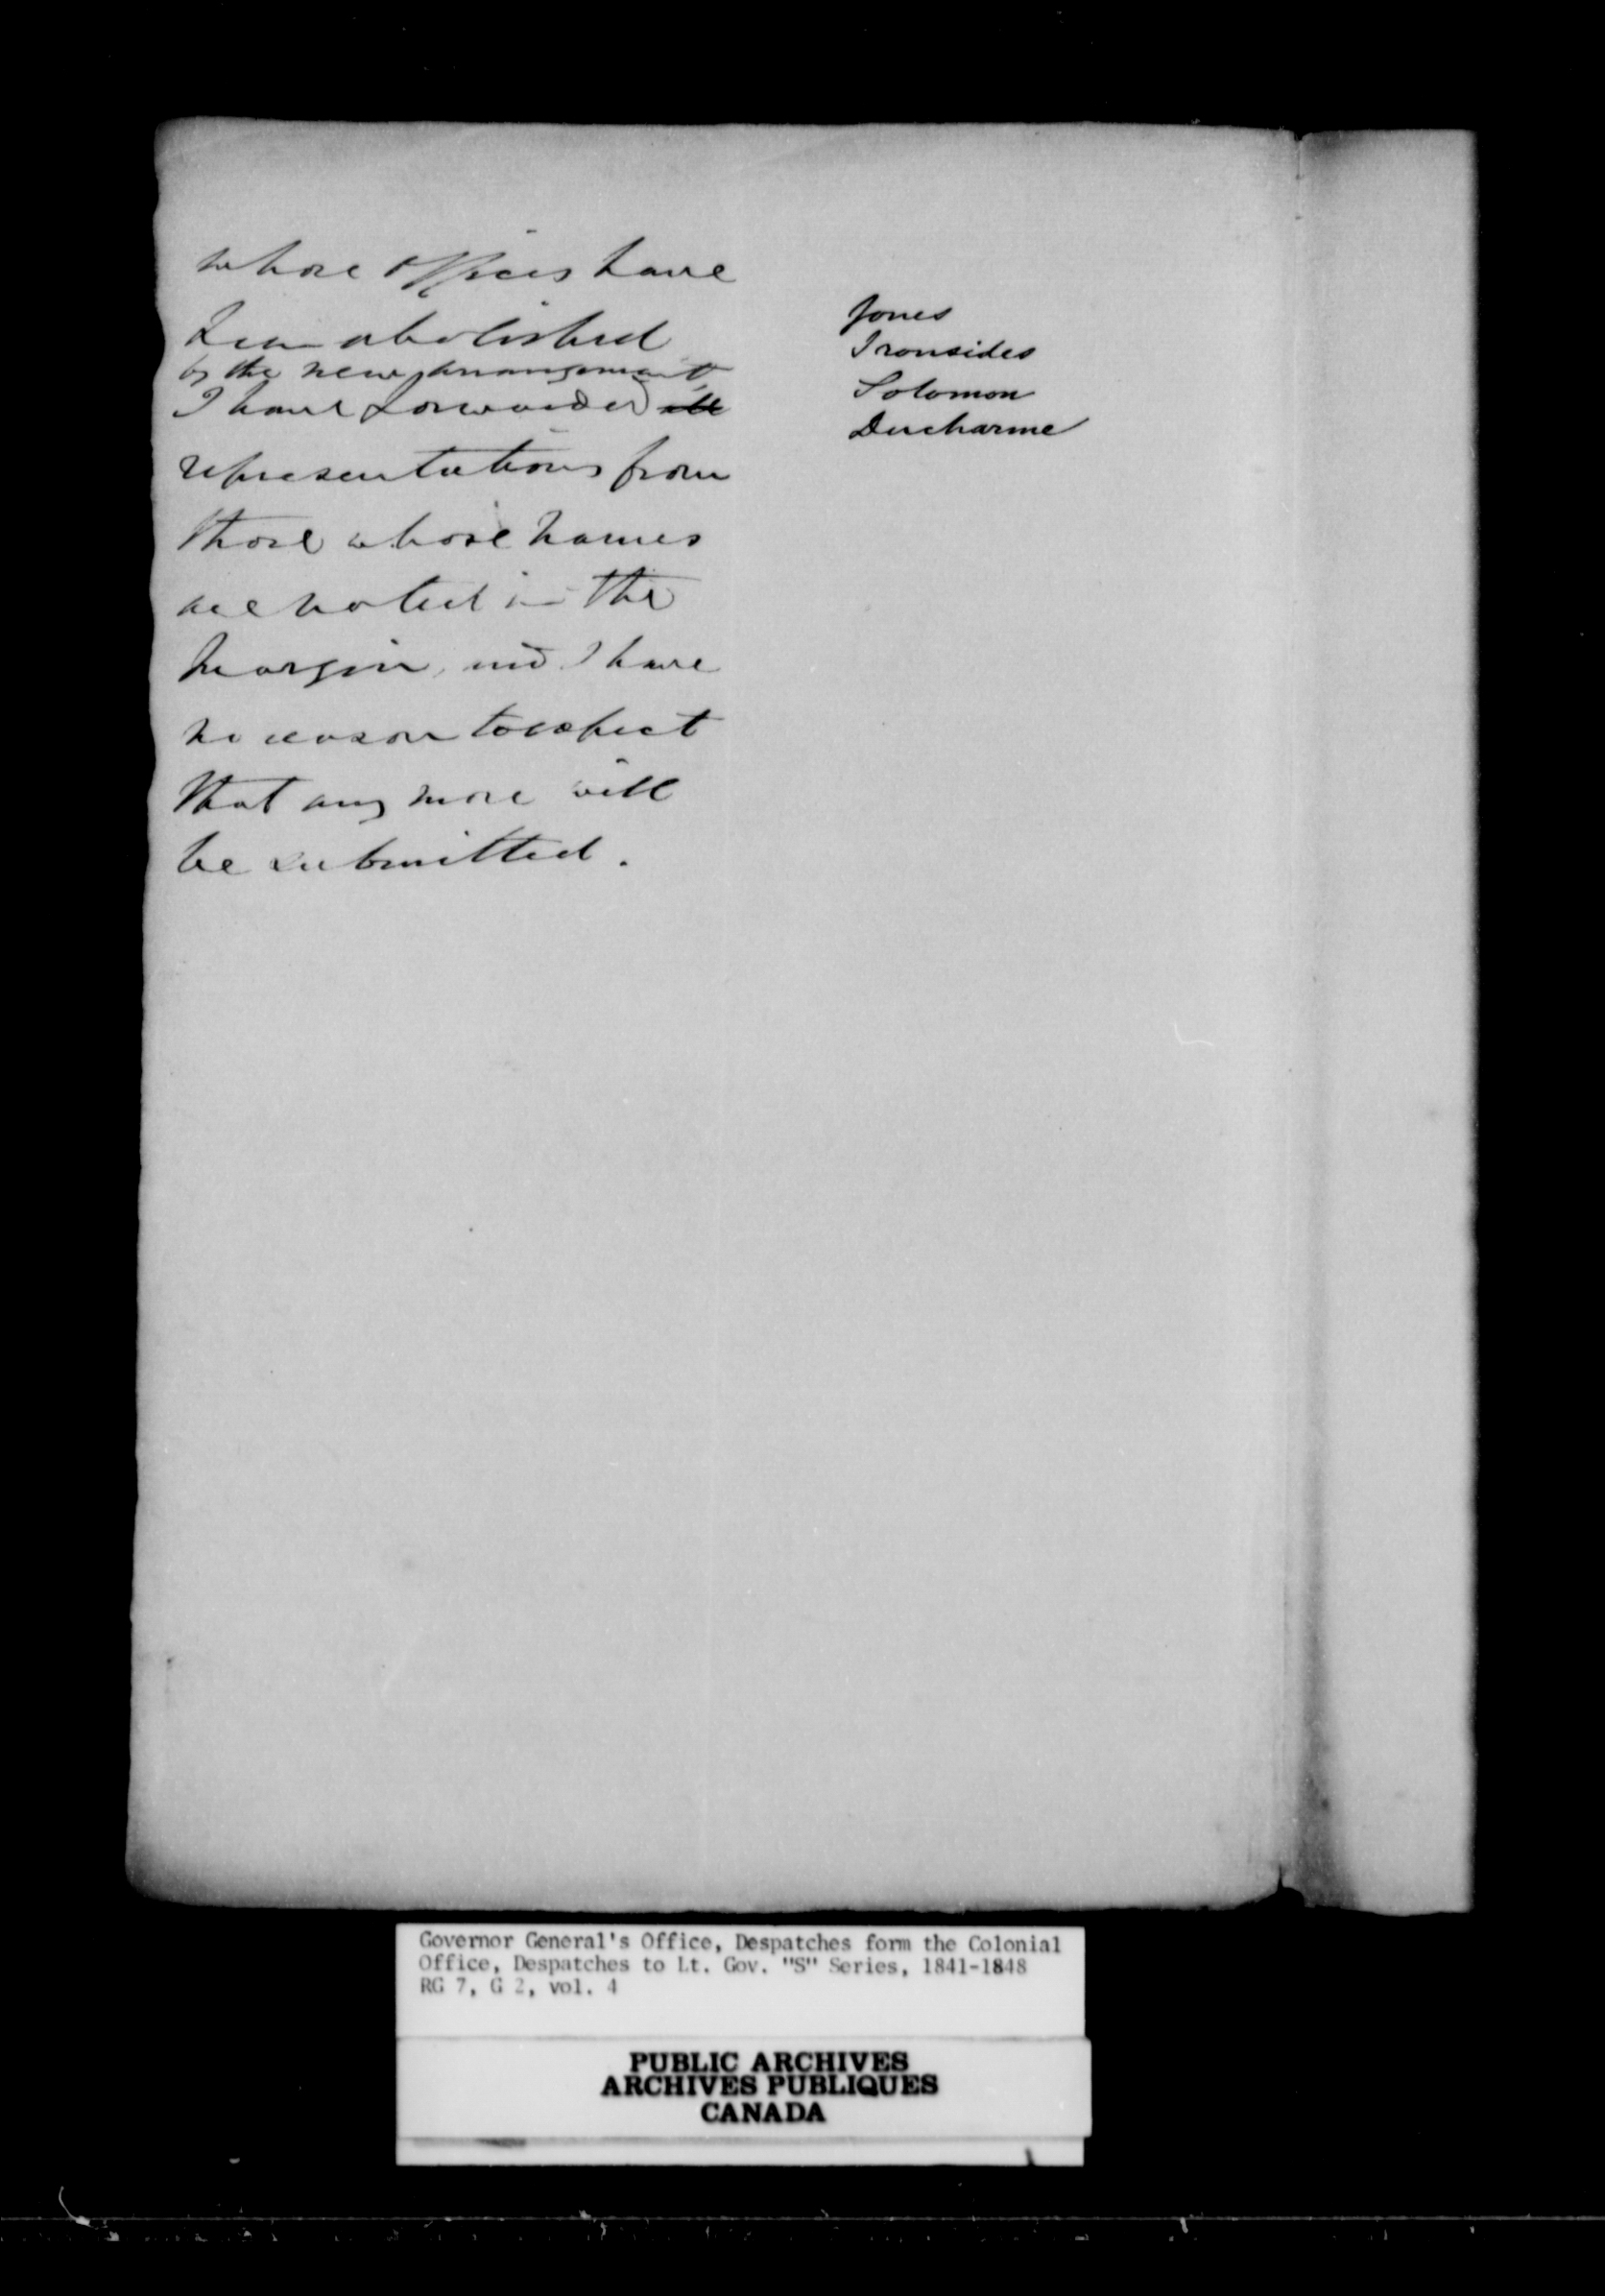 whose offices have
been abolished
by the new arrangement
I have forwarded all
representations from
those whose names
are noted in the
margin, and I have
no reason to expect
that any more will
be submitted.
Jones
Ironsides
Solomon
Ducharme
Governor General's Office, Despatches form the Colonial
Office, Despatches to Lt. Gov. "S" Series, 1841-1848
RG 7, G 2, vol. 4
PUBLIC ARCHIVES
ARCHIVES PUBLIQUES
CANADA